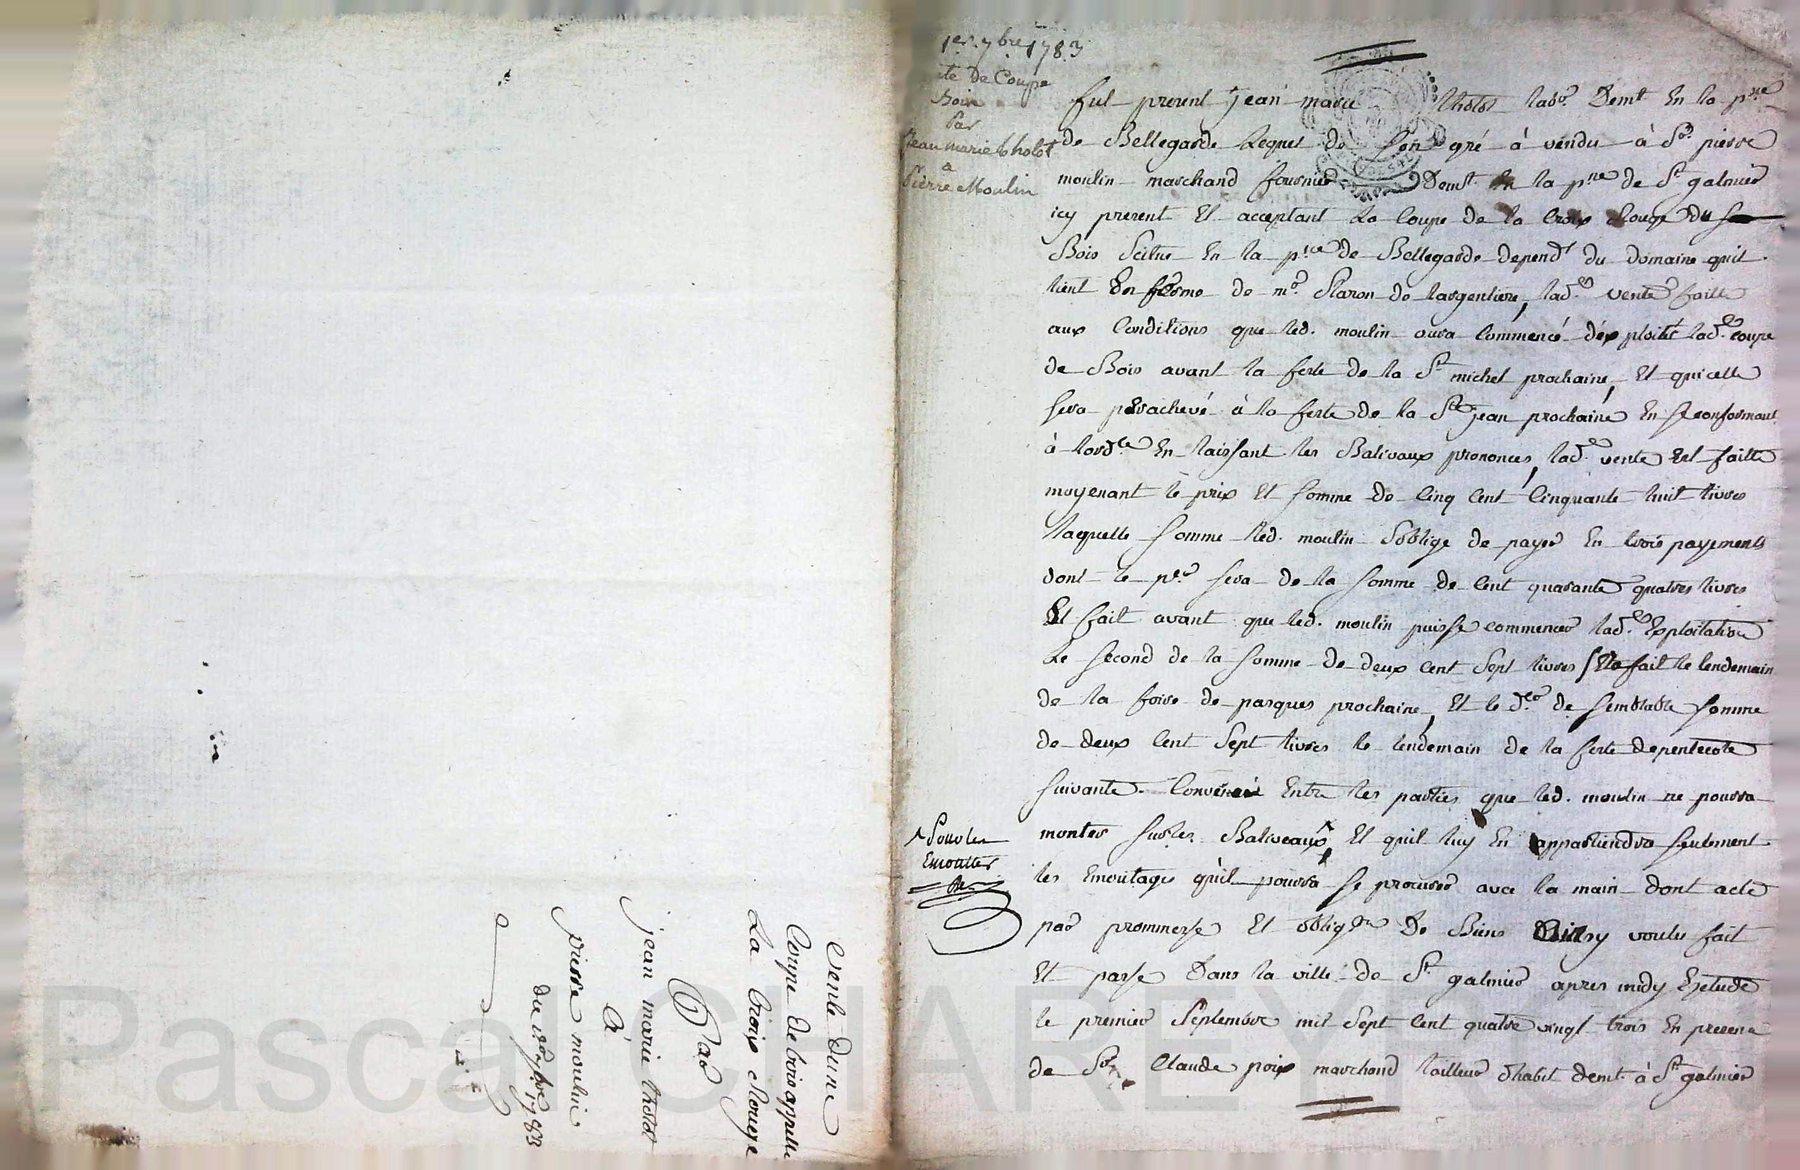 vente dune
Coupe de bois appellé
La Croix Rouge
Par
jean marie tholot
à
pierre moulin
du 1er 7bre 1783
1er. 7bre 1783
te de Coupe
Bois
Par
Jean marie tholot
a
Pierre Moulin
fut present jean marie tholot labr. Demt. En la pss
de Bellegarde Lequel de son gré à vendu à Sr. pierre
moulin marchand fournier Demt. En la psse de St galmier
icy present Et acceptant La Coupe de la Croix Rouge du
Bois Scitué En la psse de Bellegarde dependt du domaine quil
tient En ferme de mr. Staron de largentiere, lad. vente faitte
aux Conditions que led. moulin aura Commencé déxploiter lad. coupe
de Bois avant la feste de la St michel prochaine, Et quicelle
sera parachevé à la feste de la St jean prochaine En se conformant
à lordce En laissant les Balivaux prononces, lad. vente Est faitte
moyenant le prix Et somme de Cinq Cent Cinquante huit livres
laquelle somme led. moulin soblige de payer En trois payements
dont le per sera de la somme de Cent quarante quatres livres
Et fait avant que led. moulin puisse commencer lad. Exploitation
Le second de la somme de deux cent Sept livres fait le lendemain
de la foire de pasques prochaine, Et le der de semblable somme
de deux Cent Sept livres le lendemain de la feste de pentecote
suivante. Convenu Entre les parties que led. moulin ne pourra
montes sur les Baliveaux, Et quil luy En appartiendra seulement
^ Pour les
Emoutter
les Emoutages qu'il pourra se procurer avec la main dont acte
par prommesse Et obligon De Biens voulu fait
Et passé Dans la ville de St galmier apres midy Etude
le premier Septembre mil Sept Cent quatre vingt trois En presence
de Sr. Claude poix marchand tailleur dhabit demt. à St galmier
Pascal CHAREYRON